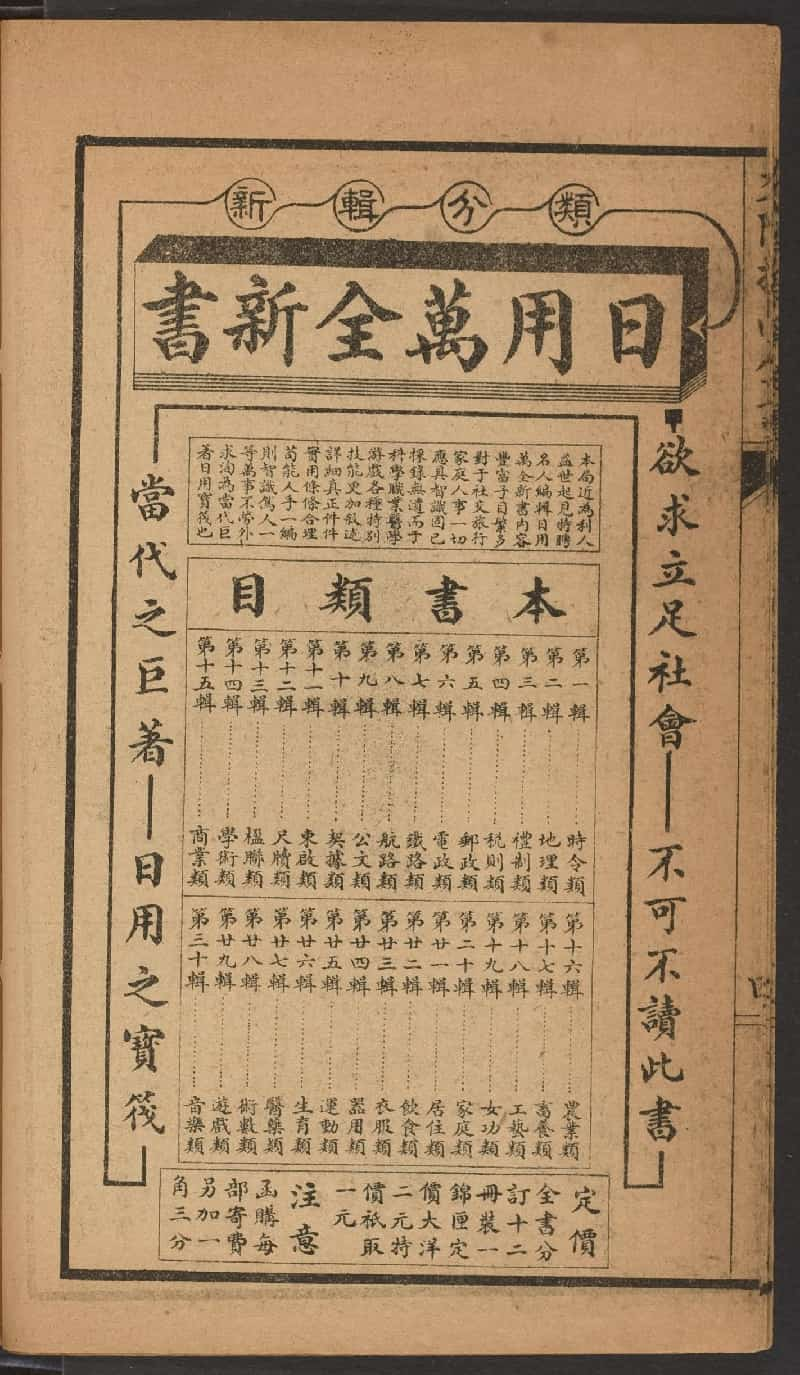 新輯分類
日用萬全新書
欲求立足社會——不可不讀此書
本局近為利人
益世起見特聘
名人編輯日用
萬全新書內容
豐富子目繁多
對于社交旅行
家庭人事一切
應具智識固已
採錄無遺而于
科學職業醫學
游戲各種特別
技能更加敘述
詳細真正件件
實用條條合理
茍能人手一編
則智識雋人一
等萬事不勞外
求洵為當代巨
著日用寶筏也
本書類目
第一輯……時令類
第二輯……地理類
第三輯……禮制類
第四輯……稅則類
第五輯……郵政類
第六輯……電政類
第七輯……鐵路類
第八輯……航路類
第九輯……公文類
第十輯……契據類
第十一輯……柬啟類
第十二輯……尺牘類
第十三輯……楹聯類
第十四輯……學術類
第十五輯……商業類
第十六輯……農業類
第十七輯……畜養類
第十八輯……工藝類
第十九輯……女功類
第二十輯……家庭類
第廿一輯……居住類
第廿二輯……飲食類
第廿三輯……衣服類
第廿四輯……器用類
第廿五輯……運動類
第廿六輯……生育類
第廿七輯……醫藥類
第廿八輯……術數類
第廿九輯……遊戲類
第三十輯……音樂類
定價
全書分
訂十二
冊裝一
錦匣定
價大洋
二元特
價祇取
一元
注意
函購每
部寄費
另加一
角三分
當代之巨著——日用之寶筏